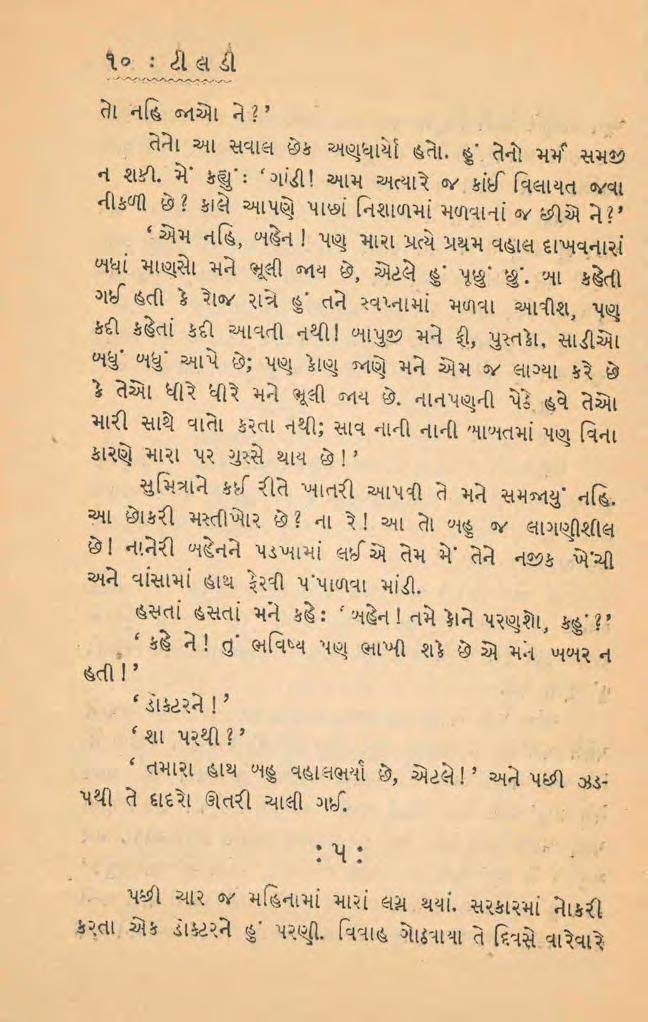 ૧૦ : ટીલડી
તો નહિ જાઓ ને?’
તેનો આ સવાલ છેક અણધાર્યો હતો. હું તેનો મર્મ સમજી
ન શકી. મેં કહ્યું: ‘ગાંડી! આમ અત્યારે જ કાંઈ વિલાયત જવા
નીકળી છે? કાલે આપણે પાછાં નિશાળમાં મળવાનાં જ છીએ ને?’
‘એમ નહિ, બહેન! પણ મારા પ્રત્યે પ્રથમ વહાલ દાખવનારાં
બધાં માણસો મને ભૂલી જાય છે, એટલે હું પૂછું છું. બા કહેતી
ગઈ હતી કે રોજ રાત્રે હું તને સ્વપ્નામાં મળવા આવીશ, પણ
કદી કહેતાં કદી આવતી નથી! બાપુજી મને ફી, પુસ્તકો, સાડીઓ
બધું બધું આપે છે; પણ કોણ જાણે મને એમ જ લાગ્યા કરે છે
કે તેઓ ધીરે ધીરે મને ભૂલી જાય છે. નાનપણની પેઠે હવે તેઓ
મારી સાથે વાતો કરતા નથી; સાવ નાની નાની બાબતમાં પણ વિના
કારણે મારા પર ગુસ્સે થાય છે!’
સુમિત્રાને કઈ રીતે ખાતરી આપવી તે મને સમજાયું નહિ.
આ છોકરી મસ્તીખોર છે? ના રે! આ તો બહુ જ લાગણીશીલ
છે! નાનેરી બહેનને પડખામાં લઈએ તેમ મેં તેને નજીક ખેંચી
અને વાંસામાં હાથ ફેરવી પંપાળવા માંડી.
હસતાં હસતાં મને કહે: ‘બહેન! તમે કોને પરણશો, કહું?’
‘કહે ને! તું ભવિષ્ય પણ ભાખી શકે છે એ મને ખબર ન
હતી!’
‘ડૉક્ટરને!’
‘શા પરથી?’
‘તમારા હાથ બહુ વહાલભર્યા છે, એટલે!’ અને પછી ઝડ-
પથી તે દાદરો ઊતરી ચાલી ગઈ.
: ૫ :
પછી ચાર જ મહિનામાં મારાં લગ્ન થયાં. સરકારમાં નોકરી
કરતા એક ડૉક્ટરને હું પરણી. વિવાહ ગોઠવાયા તે દિવસે વારેવારે